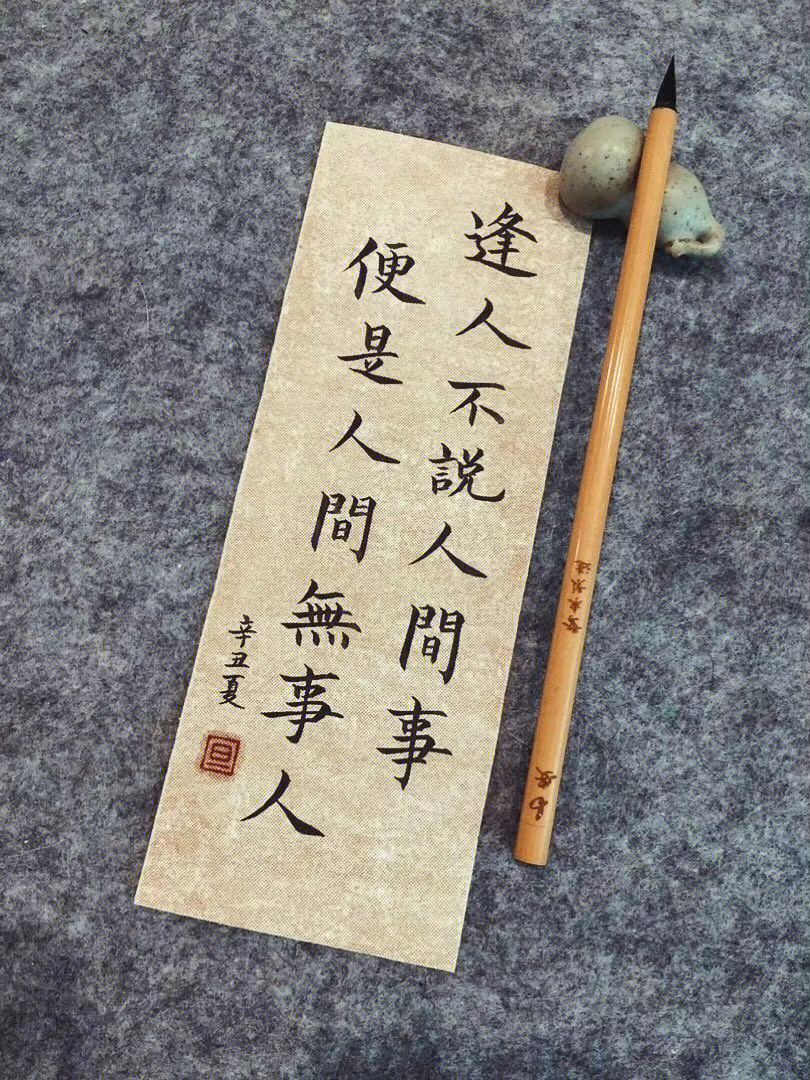 逢人不説人間事
便是人間無事人
辛丑夏